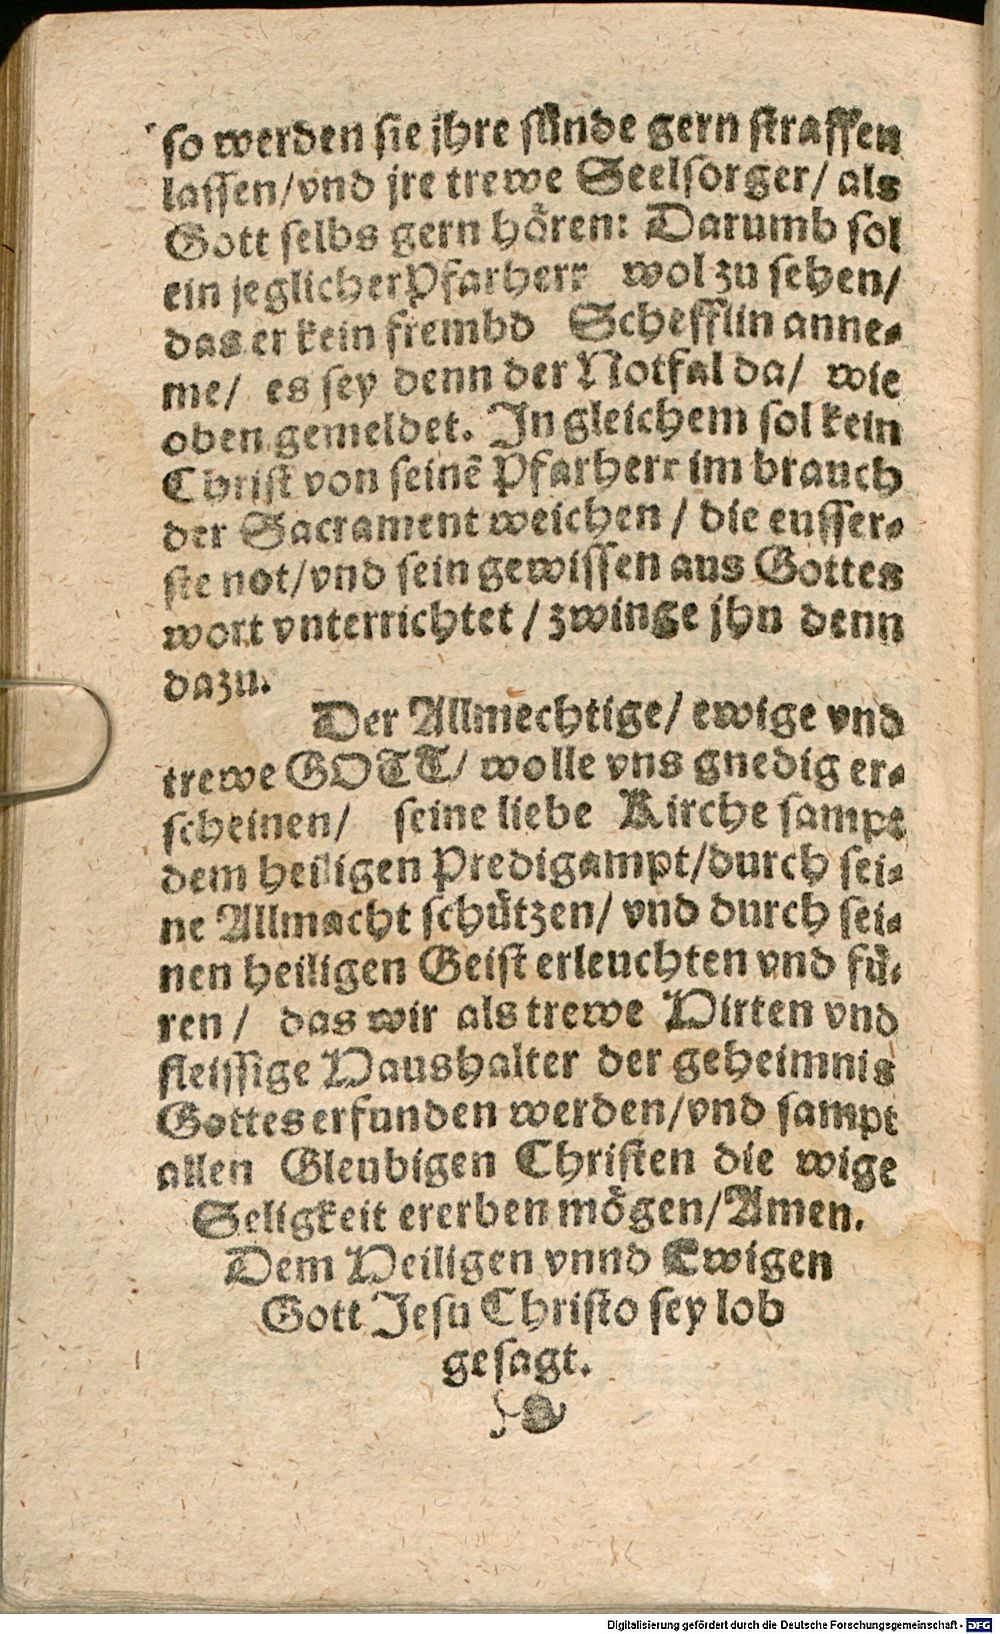 so werden sie jhre sünde gern straffen
lassen/vnd jre trewe Seelsorger/ als
Gott selbs gern hören: Darumb sol
ein jeglicher Pfarherr wol zu sehen/
das er kein frembd Schefflin anne-
me/ es sey denn der Notfal da/ wie
oben gemeldet. In gleichem sol kein
Christ von seinẽ Pfarherr im brauch
der Sacrament weichen / die eusser-
ste not/vnd sein gewissen aus Gottes
wort vnterrichtet / zwinge jhn denn
dazu.
Der Allmechtige/ ewige vnd
trewe GOTT/ wolle vns gnedig er-
scheinen/ seine liebe Kirche sampt
dem heiligen Predigampt/durch sei-
ne Allmacht schützen/ vnd durch sei-
nen heiligen Geist erleuchten vnd fü-
ren / das wir als trewe Hirten vnd
fleissige Haushalter der geheimnis
Gottes erfunden werden/vnd sampt
allen Gleubigen Christen die wige
Seligkeit ererben mögen/Amen.
Dem Heiligen vnnd Ewigen
Gott Jesu Christo sey lob
gesagt.
Digitalisierung gefördert durch die Deutsche Forschungsgemeinschaft - DFG